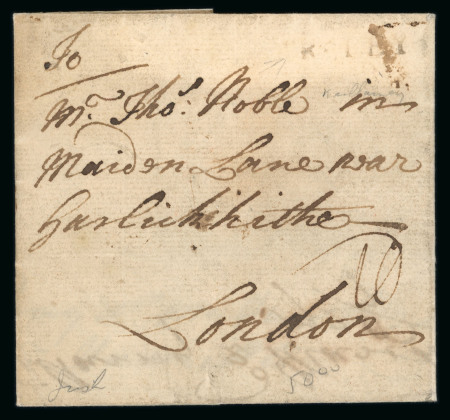 To
Mr. Thos. Noble in
Maiden Lane near
Garlickhithe
London